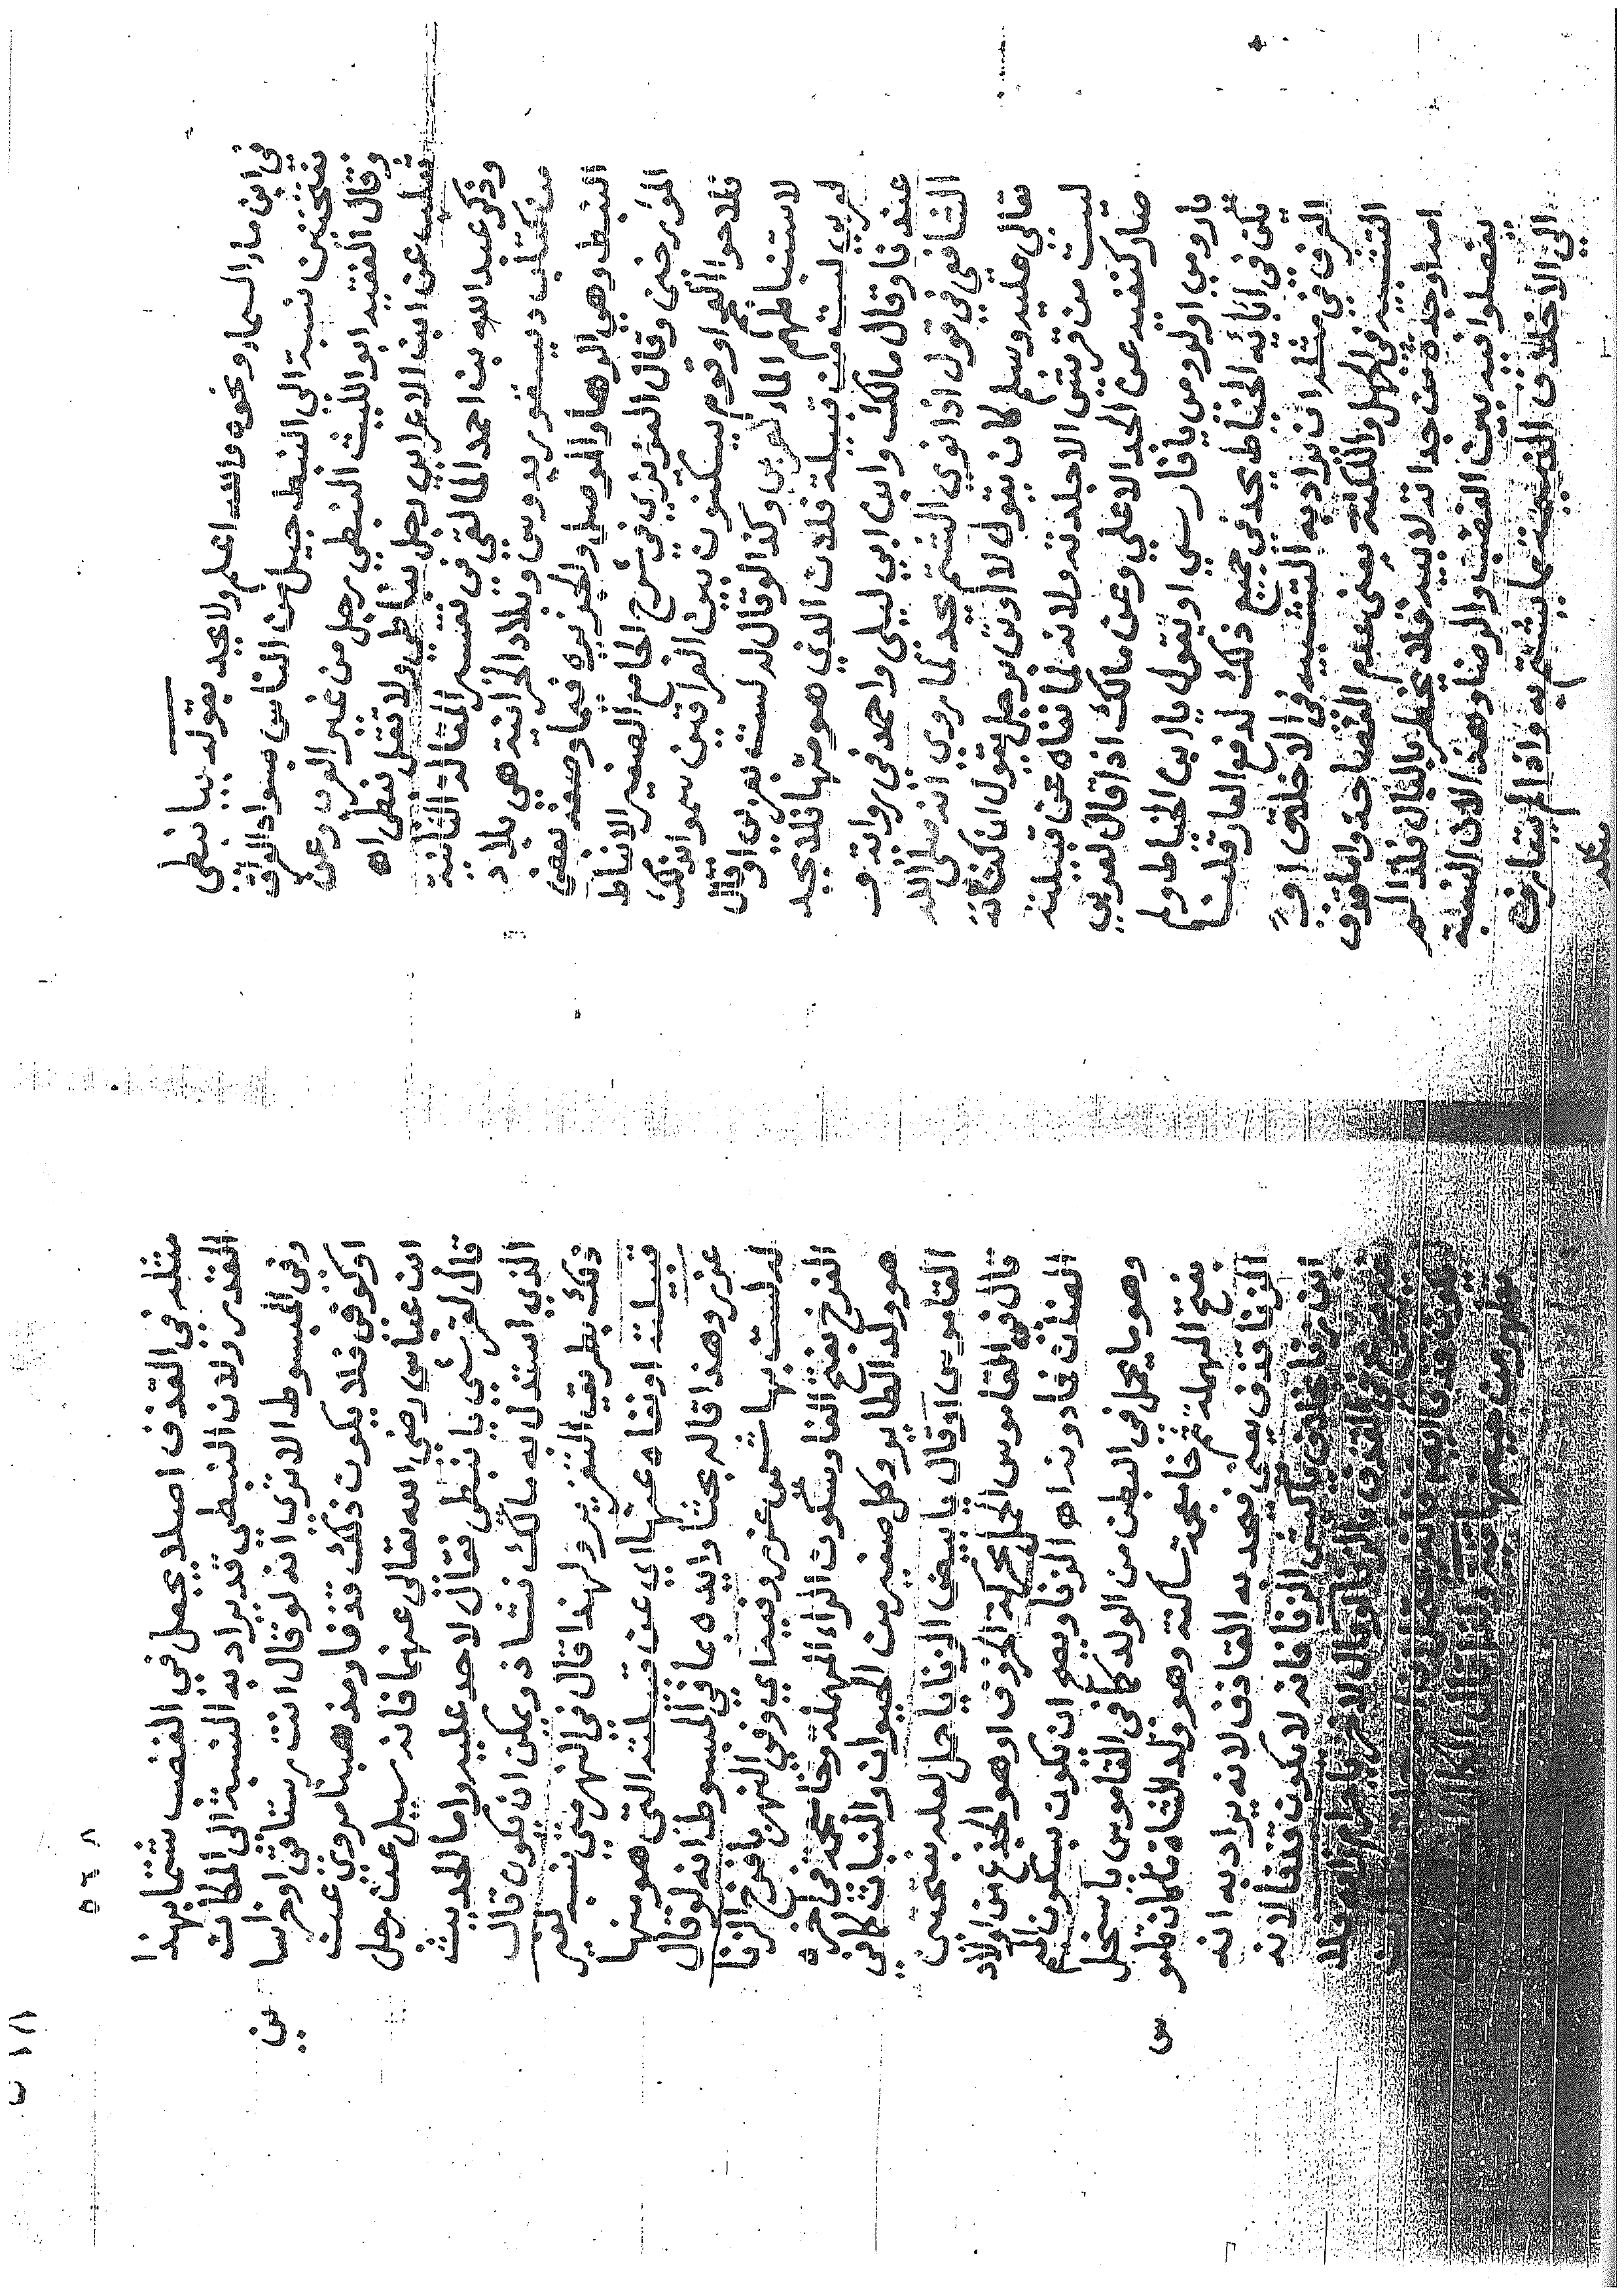 في ابن ماء السماء ونحوه والله اعلم ولا يحد بقوله يا نبطي
بفتحتين نسبة الي النبط جيل من الناس بسواد العراق
وقال الفقيه ابو الليث النبطي رجل من غير العرب وعن
ثعلب عن ابن الاعرابي رجل نباطي ولا تقل نبطي اه
وذكر عبد الله بن احمد المالقي في تفسير المقالة الثانية
من كتاب ديسقوريدوس وبلاد الجرامقة هي بلاد
النبط وهي الرها والموصل والجزيرة فيما وصفه بعض
المؤرخين وقال العزيزي في شرح الجامع الصغير الانباط
فلاحوا العجم او قوم يسكنون بين العراقين سموا بذلك
لاستنباطهم الماء لعربي وكذا لو قال له لست بعربي او قال
لعربي لست من قبيلة فلان الذي هو منها فلا يحد
عندنا وقال مالك وابن ابي ليلي واحمد في رواية و
الشافعي في قول اذا نوي الشتم يحد لما روي انه صلى الله
تعالي عليه وسلم كان يقول لا اوتى برجل يقول ان كنانة
ليست من قريش الا جلدته ولانه لما نفاه عن قبيلته
صار كنفيه عن الجد الاعلي وعن مالك اذا قال لعربي
يا رومي او لرومي يا فارسي او يقول يا ابن الخياط ولم
يكن في ابائه الخياط يحد في جميع ذلك لدفع العار قلنا
العرف في مثله ان يراد به التشبيه في الاخلاق او
التشبيه في الجهل واللكنة بمعنى عدم الفصاحة وبالعرف
امه او جده من جداته لابيه فلا يخطر بالبال فلذا لم
يفصلوا فيه بين الغضب والرضا وهذا لان النسبة
الي الاخلاق القبيحة مما يشتم به واذا لم يتعارف
مثله في القذف اصلا يجعل في الغضب شتما بهذا
القدر ولان النبطي قد يراد به النسبة الي المكان
وفي المبسوط الا تري انه لو قال انت رستاقي او خراسا
ني
او كوفي فلا يكون ذلك قذفا ومذهبنا مروي عن
ابن عباس رضي الله تعالي عنهما فانه سئل عن رجل
قال لقرشي يا نبطي فقال لا حد عليه واما الحديث
الذي استدل به مالك فشاذ ويمكن ان يكون قال
ذلك بطريق التعزير ولهذا قال في النهر متي نسبه لغير
قبيلته او نفاه عنها اي عن قبيلته التي هو منها
عزر وهذا قاله بحثا وايده بما في المبسوط انه لو قال
له لست بهاشمي عزر وفيه اي وفي النهر يا فرخ الزنا
الفرخ بفتح الفا وسكون الراء المهملة وخا معجمة في اخره
هو ولد الطاير وكل صغير من الحيوان والنبات كما في
القاموس او قال يا بيض الزنا يا حمل لعله بفتحتين
قال في القاموس الحمل محركة الخروف او هو الجذع من اولاد
الضان فما دونه اه الزنا ويصح ان يكون بسكون الميم
وهو ما يحمل في البطن من الولد كما في القاموس يا سخل
بفتح المهملة ثم خا معجمة ساكنة وهو ولد الشاة ما كان قاموس
الزنا قذف يعني فيحد به القاذف لانه يراد به انه
ابن زنا بخلاف يا كبش الزنا فانه لا يكون قذفا لانه